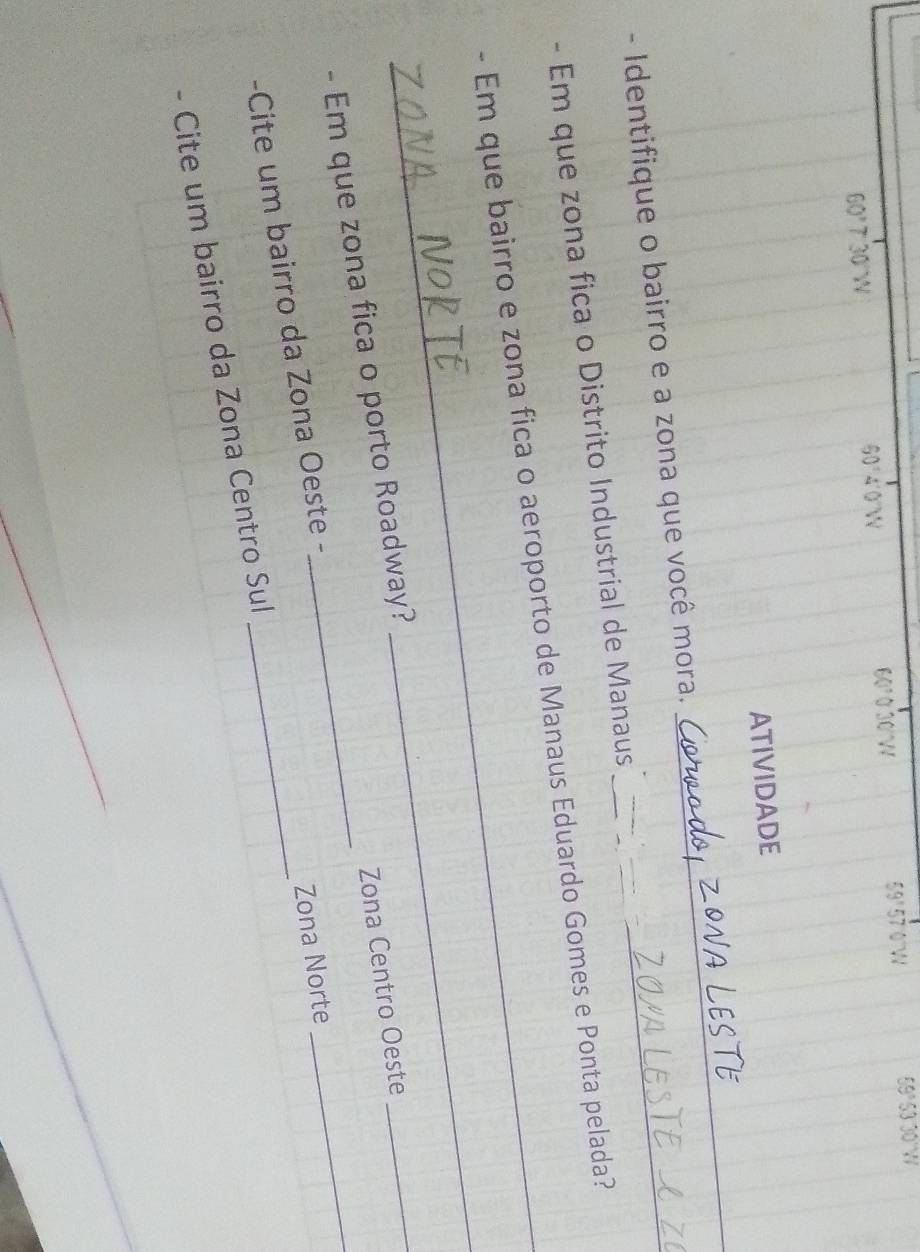 60°7'30"W 60°4'0"W 60°0'30"W 59°57'0"W 59°53'30"W
ATIVIDADE
- Identifique o bairro e a zona que você mora. ZONA LESTE
- Em que zona fica o Distrito Industrial de Manaus ZONA LESTE e
- Em que bairro e zona fica o aeroporto de Manaus Eduardo Gomes e Ponta pelada?
ZONA NORTE
- Em que zona fica o porto Roadway?
-Cite um bairro da Zona Oeste - Zona Centro Oeste
- Cite um bairro da Zona Centro Sul Zona Norte